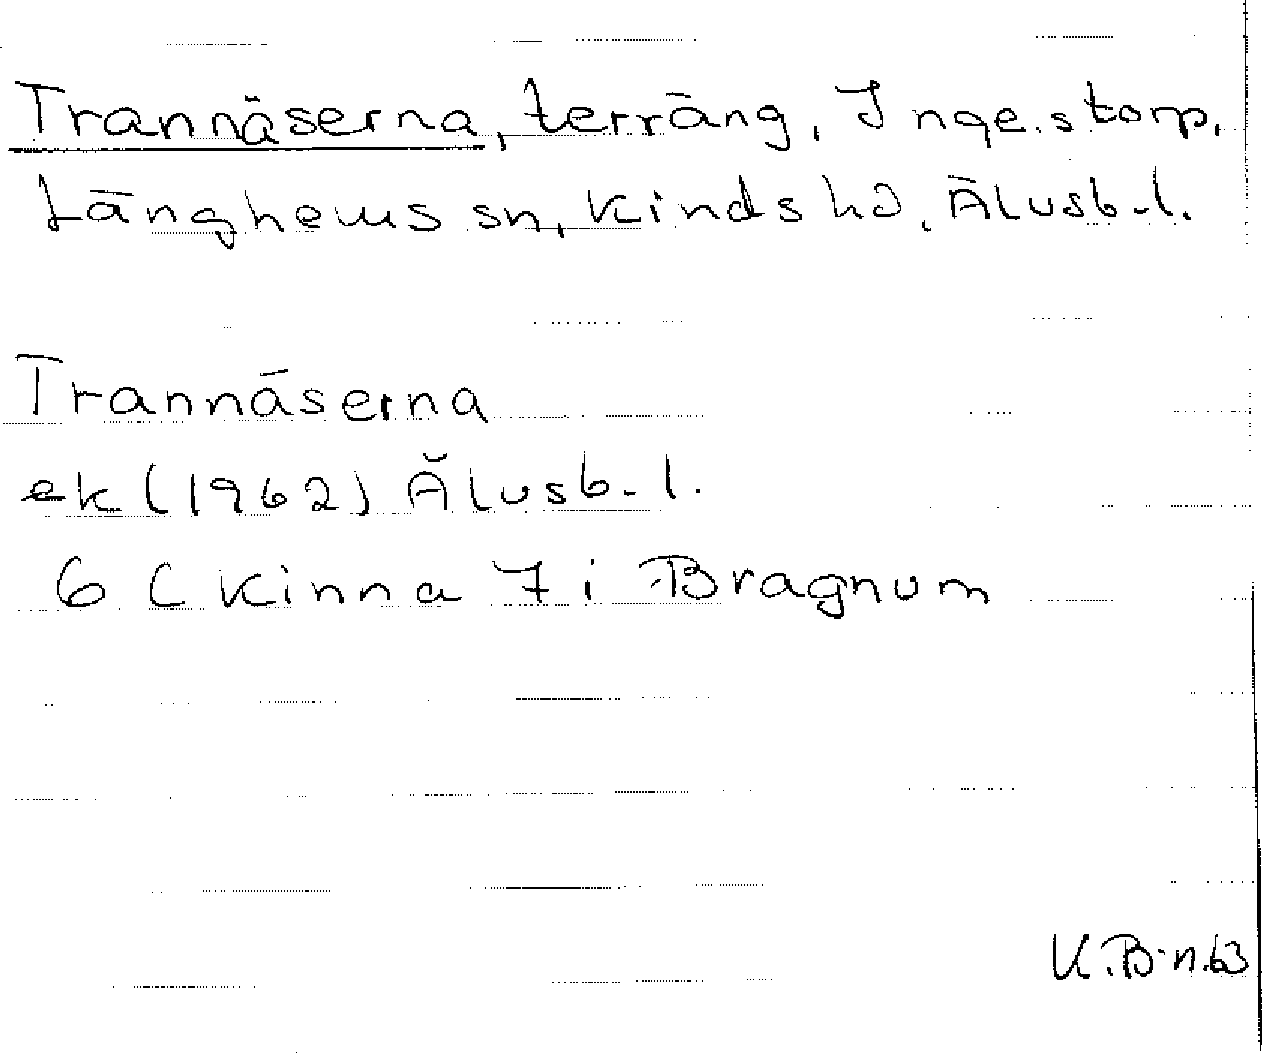 Trannäserna, terräng, Ingestorp,
Länghems sn, Kinds hd, Älvsb. l.
Trannäserna
ek (1962) Älvsb. l.
6 C Kinna 7 i Bragnum
K.B-n.63